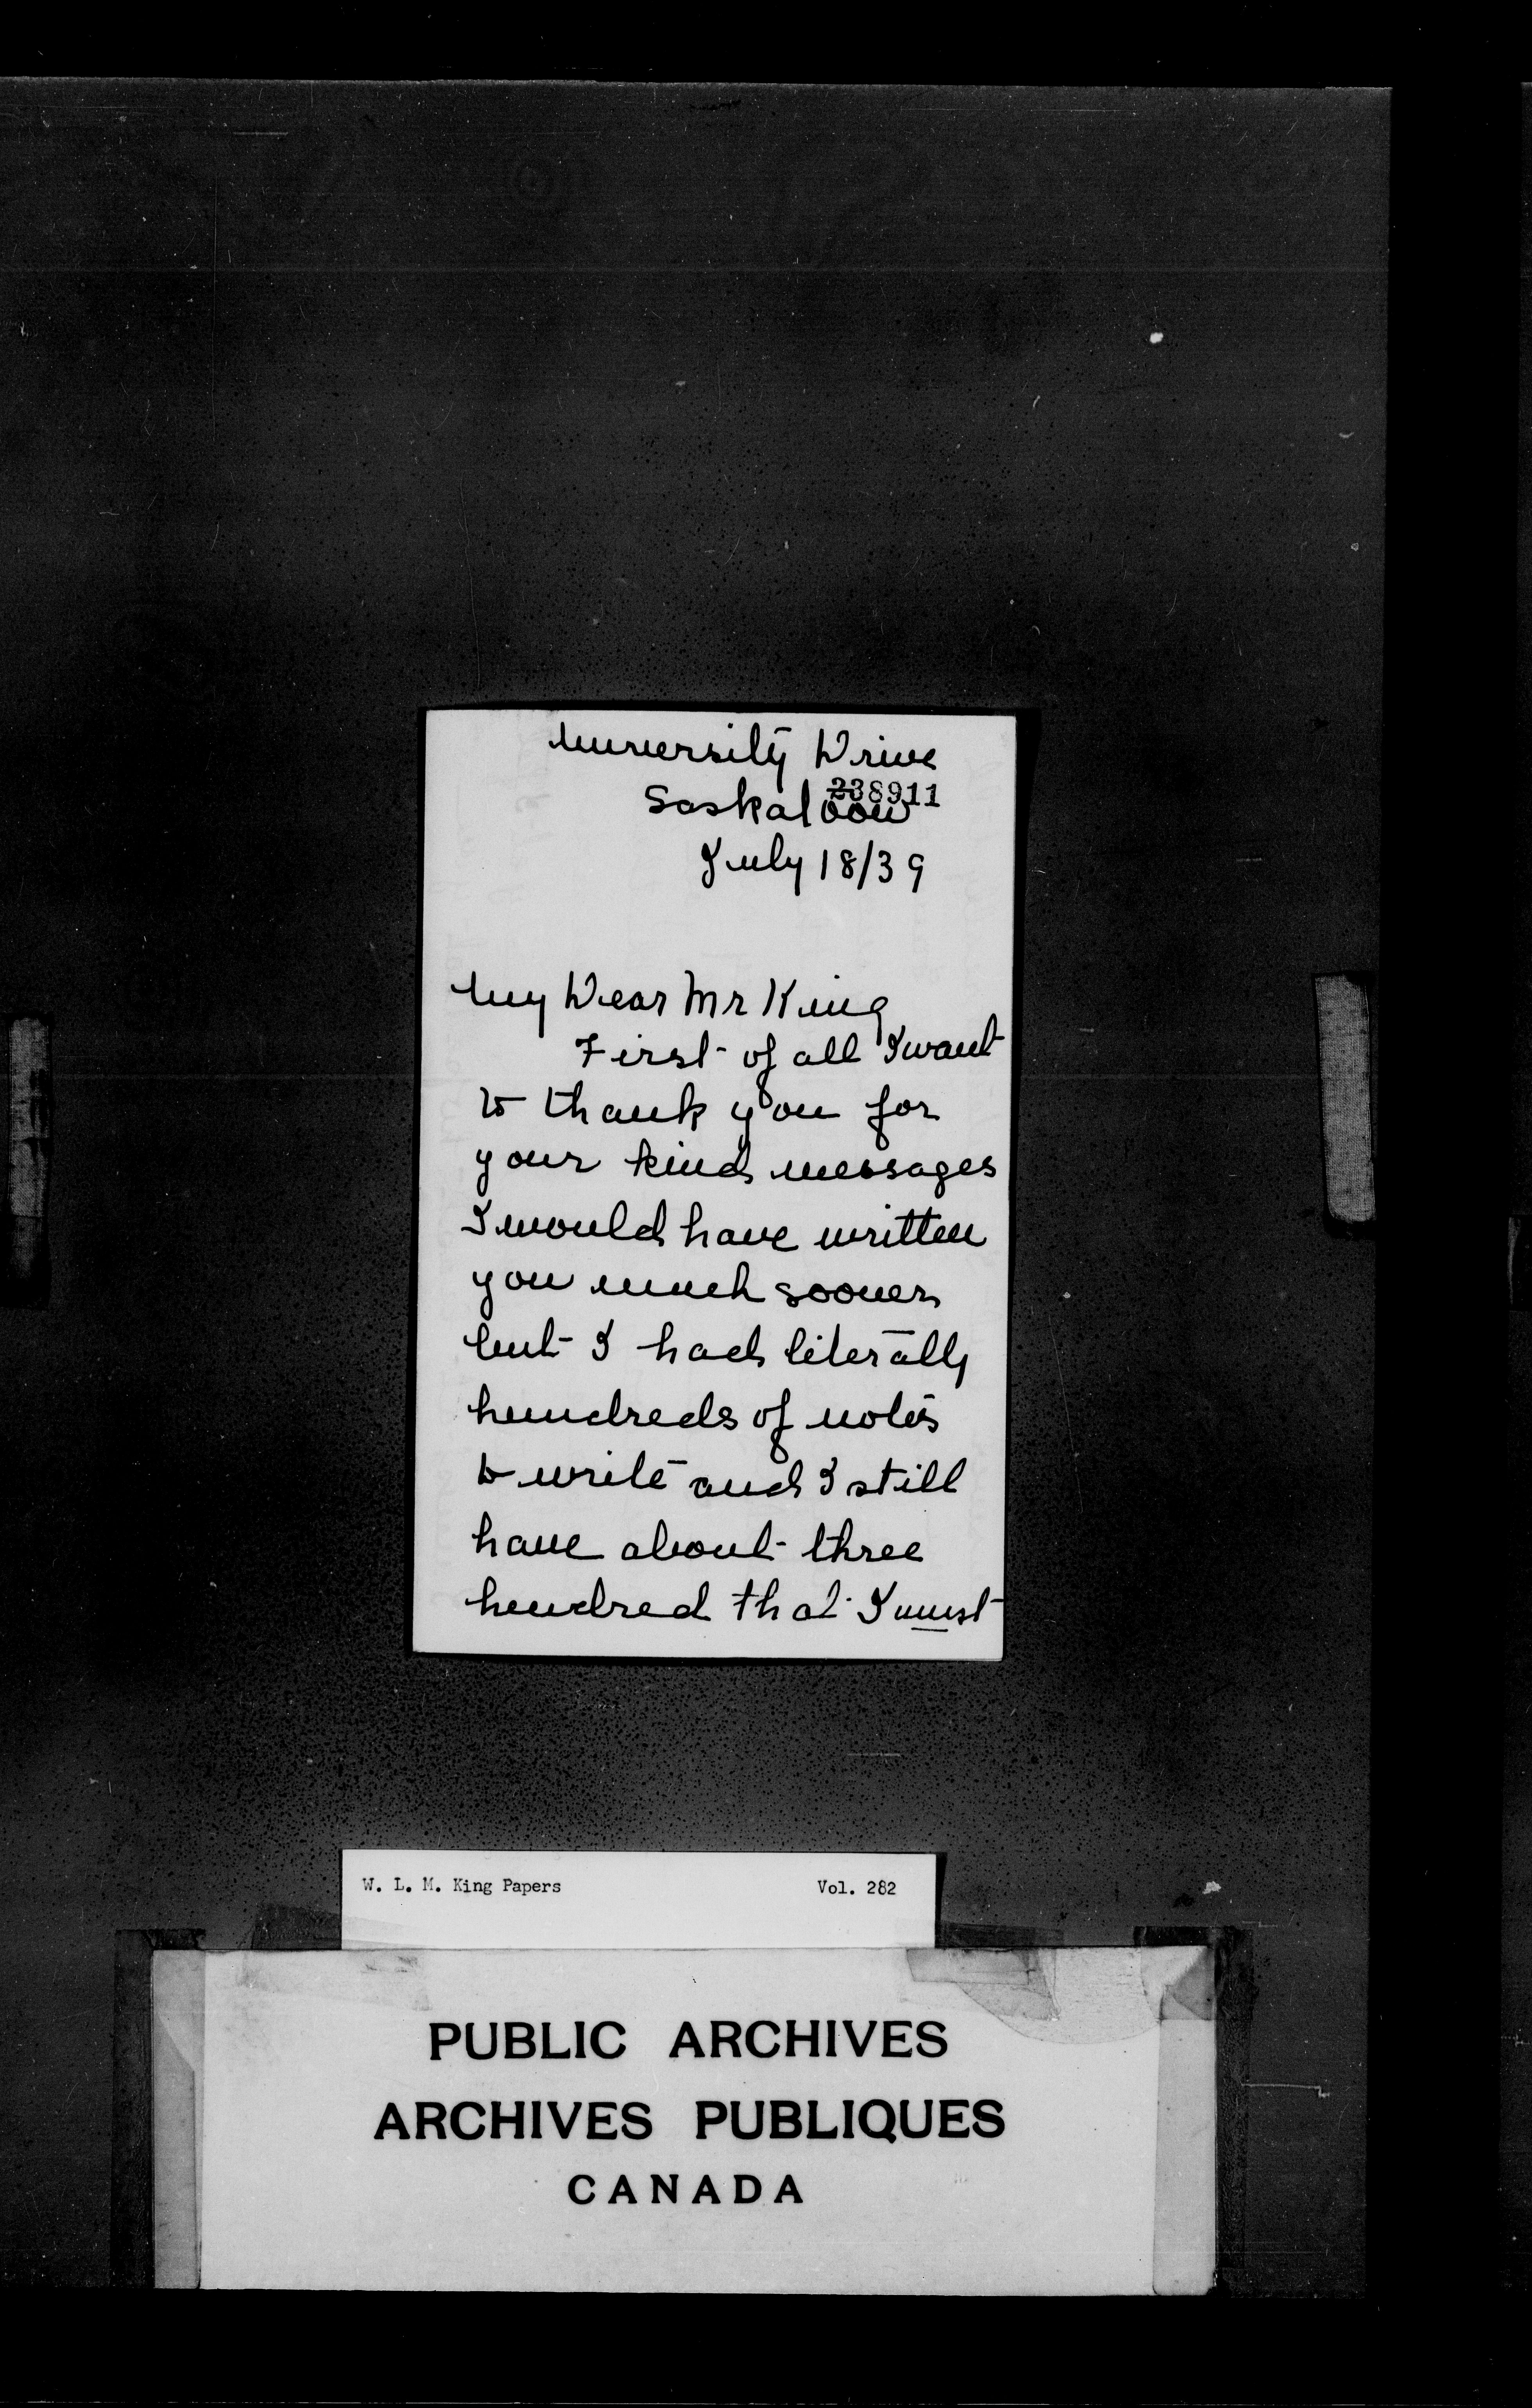 University Drive
238911
Saskatoon
July 18/39
My Dear Mr King
First of all I want
to thank you for
your kind messages
I would have written
you much sooner
but I had literally
hundreds of notes
to write and I still
have about three
hundred that I must
W. L. M. King Papers Vol. 282
PUBLIC ARCHIVES
ARCHIVES PUBLIQUES
CANADA